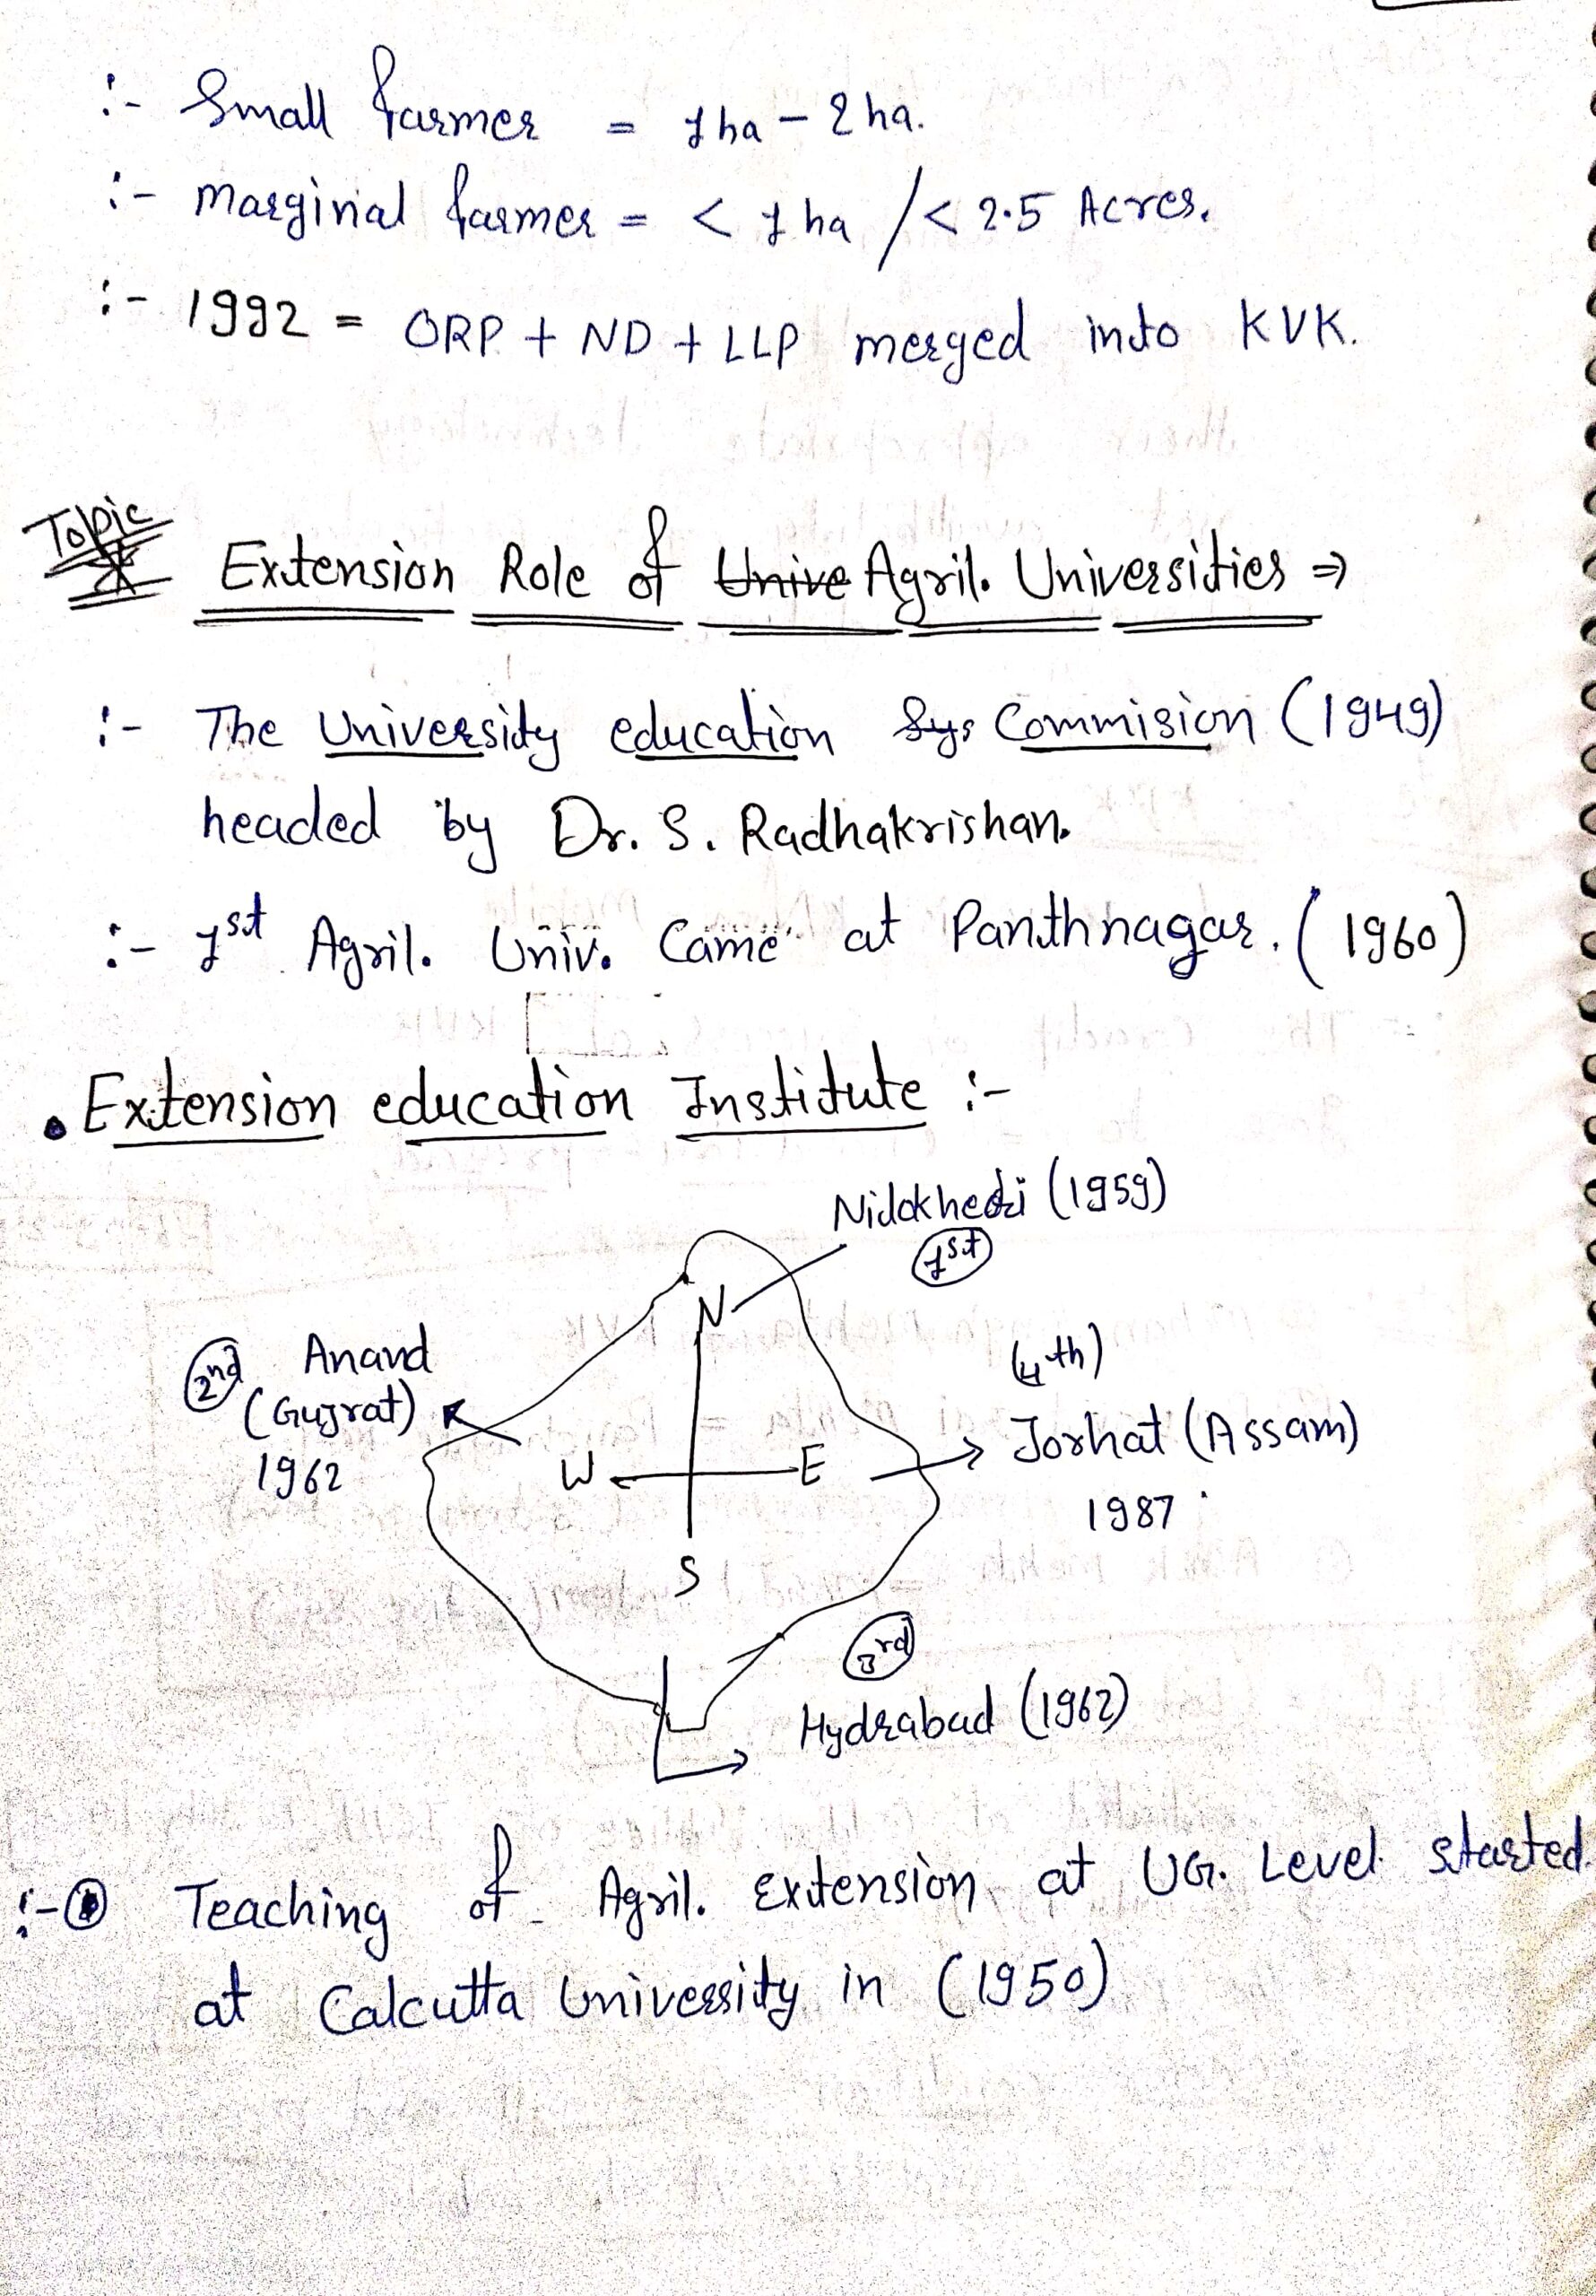 :- Small farmer = 1ha - 2ha.
:- Marginal farmer = < 1 ha / < 2.5 Acres.
:- 1992 = ORP + ND + LLP merged into KVK.
Topic
Extension Role of Unive Agril. Universities ⇒
:- The University education Sys Commision (1949)
headed by Dr. S. Radhakrishan.
:- 1st Agril. Univ. Came at Panthnagar. (1960)
• Extension education Institute :-
Nilokhedi (1959)
1st
N
2nd Anand
(Gujrat)
1962
(4th)
W E → Jorhat (Assam)
1987
S
3rd
Hydrabad (1962)
:- Teaching of Agril. Extension at UG. Level started.
at Calcutta University in (1950)